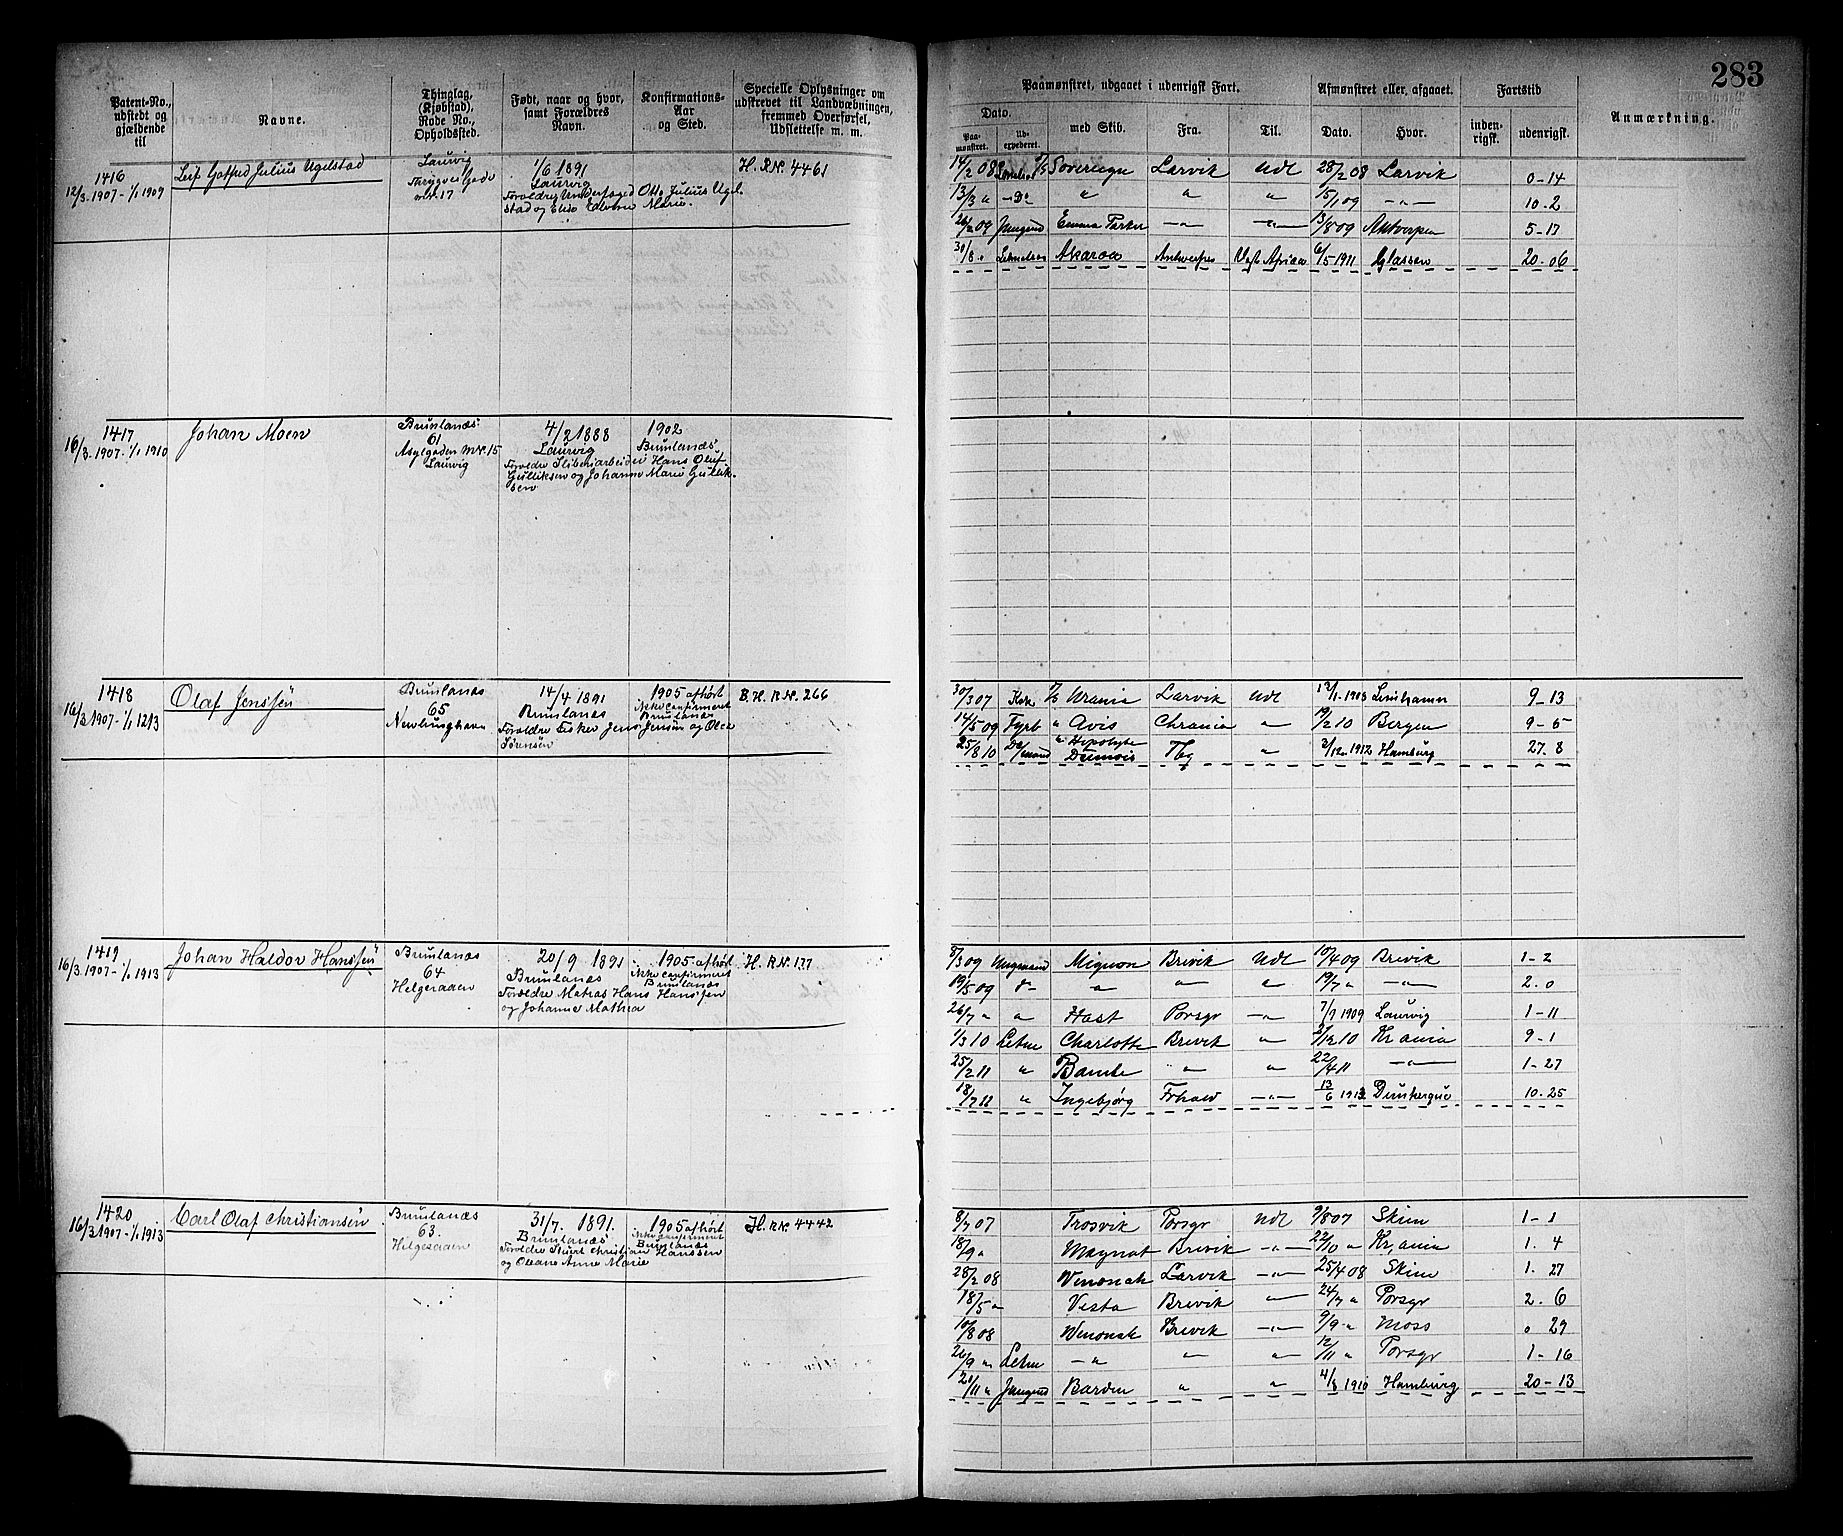 283
Patent-No., udstedt og gjældende til
Navne.
Thinglag, (Kjøbstad), Rode No., Opholdssted.
Født, naar og hvor, samt Forældres Navn.
Konfirmations-Aar og Sted.
Specielle Oplysninger om udskrevet til Landvæbningen, fremmed Overførsel, Udslettelse m. m.
Paamønstret, udgaaet i udenrigsk Fart.
Dato.
Paamønstret.
Udexpederet.
med Skib.
Fra.
Til.
Afmønstret eller, afgaaet.
Dato.
Hvor.
Fartstid
indenrigsk.
udenrigsk.
Anmærkning.
1416
12/3 1907 - 1/1 1909
Leif Gotfred Julius Ugelstad
Laurvig
Thrygves Gade
m.N. 17
1/6 1891
Laurvig
Forældre Otto Julius Ugelstad og Elise Marie.
H. R.N. 4461
14/2 08 Sovereign Larvik Udl 28/2 08 Larvik 0-14
13/3 " - Do " " " 5/1 09 -"- 10-2
26/2 09 Jungund Emma Parker -"- -"- 13/8 09 Antwerpen 5-17
30/8 " Akaroa Antwerpen Afrika 6/5 1911 20-06
1417
16/3. 1907 - 1/1 1910
Johan Moen
Brunlanæs
61
Asylgaden M.N. 15
Laurvig
4/2 1888
Laurvig
Forældre Sliberiarbeider Hans Oluf
Gulliksen og Johanne Marie Gullik-
sen
1902
Brunlanæs
1418
16/3 1907 - 1/1 1913
Olaf Jenssen
Brunlanæs
65
Nevlunghavn
14/4 1891
Brunlanæs
Forældre Fisker Jens Jensen og Olea
Sørensen
1905 afhørt
ikke confirmeret
Brunlanæs
B. H. R.N. 266
30/3 07 Urania Larvik Udl 1908 Limhamn 9-13
14/5 09 Fyrb " Avis Chrania " 19/2 10 Bergen 9-5
25/8 10 " Tbg " 2/12 1912 Hamburg 27. 8
1419
16/3. 1907 - 1/1 1913
Johan Haldor Hanssen
Brunlanæs
64
Helgeraaen
20/9 1891
Brunlanæs
Forældre Matros Hans Hanssen
og Johanne Mathea
1905 afhørt
ikke confirmeret
Brunlanæs
H. R.N. 177
8/3 09 Ungmand Mignon Brevik Udl 10/4 09 Brevik 1-2
19/5 09 do " " " 19/7 " -"- 2. 0
26/7 " " Hast Porsgr -"- 7/9 1909 Laurvig 1-11
1/3 10 Letm Charlotte Brevik " 2/12 10 Krania 9-1
25/2 11 " Bamle " " 22/4 11 -"- 1-27
18/7 12 " Ingebjørg Frhald -"- 13/6 1913 Dunkerque 10-25
1420
16/3 1907 - 1/1 1913
Carl Olaf Christiansen
Brunlanæs
63.
Helgeraaen
31/7. 1891.
Brunlanæs
Forældre Christian Hanssen
og Oleane Anne Marie
1905 afhørt
ikke confirmeret
Brunlanæs
H. R.N. 4442
8/7 07 Trosvik Porsgr Udl 9/8 07 Skien 1-1
18/9 " Magnat Brevik -"- 22/10 " Krania 1. 4
28/2 08 Winonah Larvik -"- 25/4 08 Skien 1. 27
18/5 " Vesta Brevik -"- 24/7 " Porsgr 2. 6
10/8 08 Winonah Brevik -"- 9/9 " Moss 0 29
26/9 " Letm -"- " " 12/11 " Porsgr 1-16
21/11 " Jungmd Barden " " 4/8 1910 Hamburg 20-13